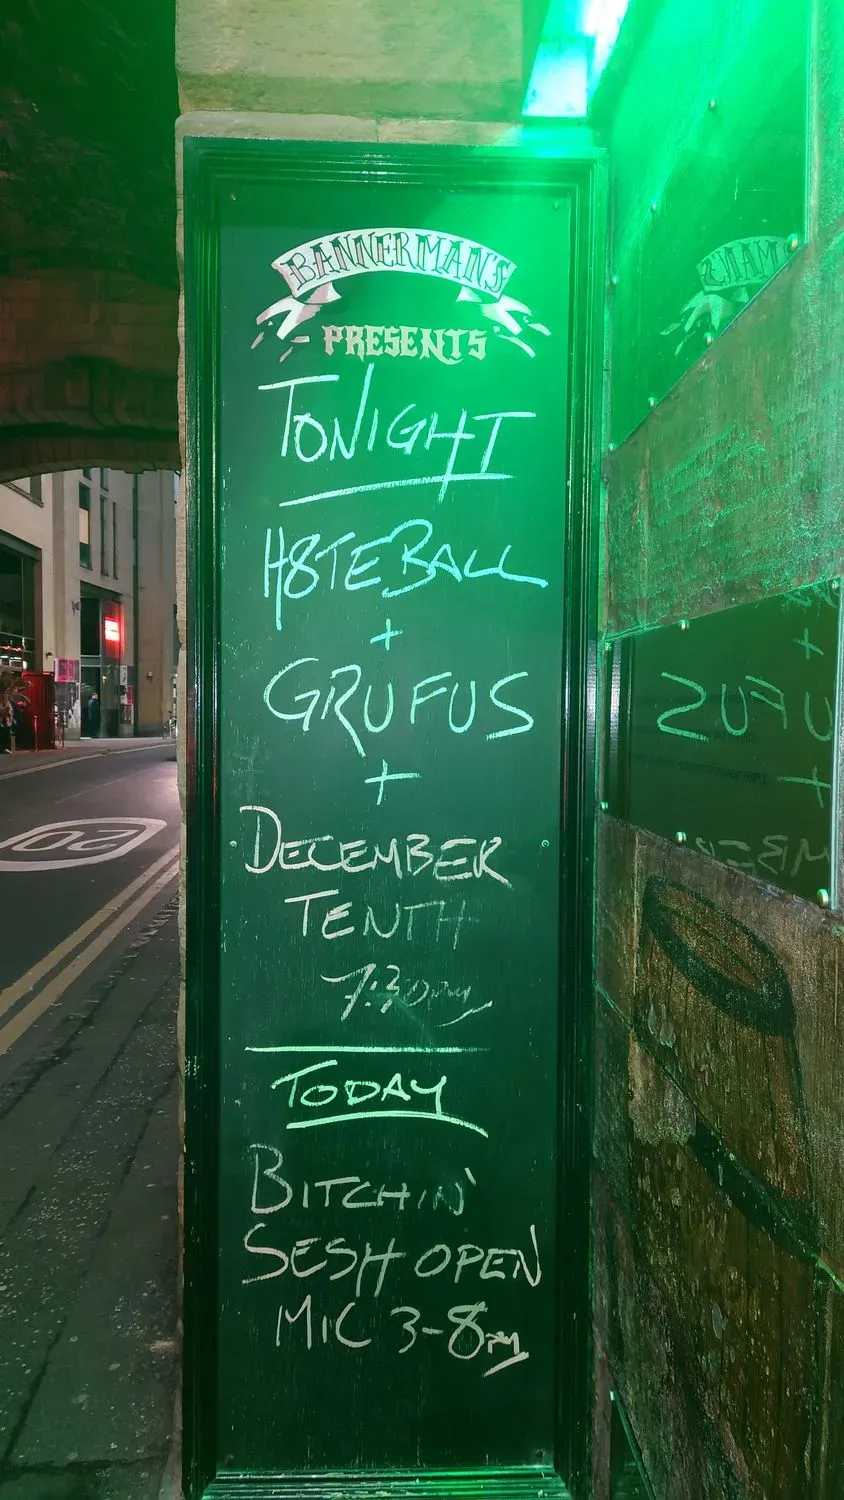 BANNERMAN'S
PRESENTS
TONIGHT
H8TEBALL
+
GRUFUS
+
DECEMBER
TENTH
7:30pm
TODAY
BITCHIN'
SESH OPEN
MIC 3-8PM
20